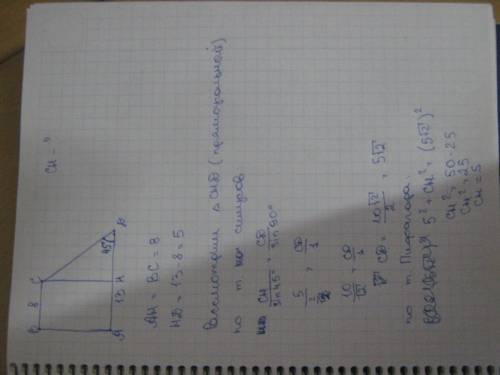 CH - ?
B 8 C
45° D
A 13 H
AH = BC = 8
HD = 13 - 8 = 5
Рассмотрим △ CHD (прямоугольной)
по т. синусов
CH/sin45° = CD/sin90°
CD/1
10/√2 = CD/1
CD = 10√2/2 = 5√2
по т. Пифагора.
5² + CH² = (5√2)²
CH² = 50 - 25
CH² = 25
CH = 5